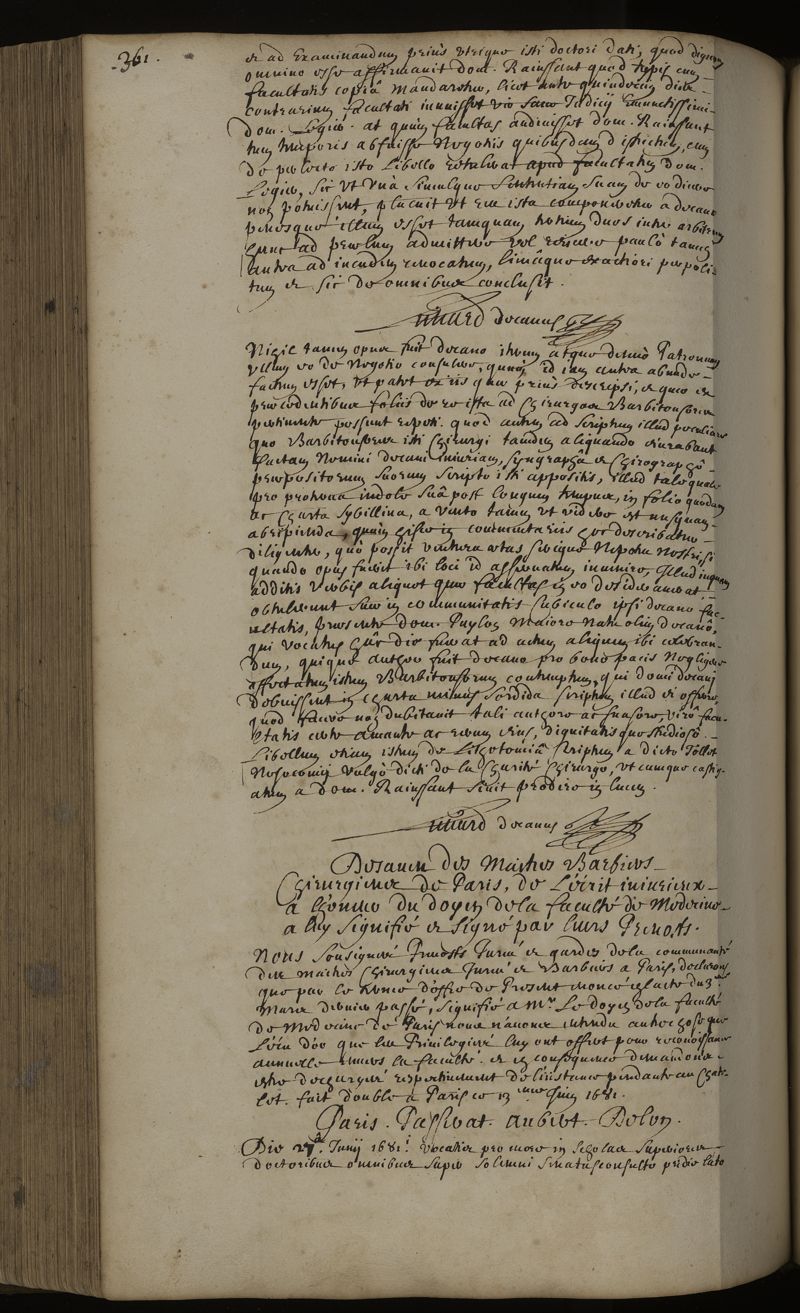 361.
et ad Examinandum prius utrique isti doctori dati, quod dignum
omnino esse affirmavit dom. Rainssant quod typis cum
facultatis copiâ mandaretur, licet ante quindecim dies
contrarium facultati innuisset vir sane Judicii Emunctissimi
dom. Legier. at quum facultas audivisset dom. Rainssant
tum temporis abfuisse negotiis quibusdam districtum, cum
de prælecto isto Libello retulerat apud facultatem dom.
Legier, sic ut unà simulque sententiam suam de eo dicere
non potuissent, placuit ut ea ista componeretur a decano
penesque illum esset tanquam tertium duos inter arbitros
hunc ad prælum admittere vel paulò tamen
antea ad incudem revocatum, limâque exactiori perpoli-
tum et sic de omnibus conclusit.
decanus
Nihil tamen opus fuit decano iterum atque denuò Patronum
ullum eo de Negotio consulere, quum id iam antea abunde
factum esset, ut patet ex iis quæ prius descripsi, et quæ ex
præcedentibus foliis de re ista ad Chirurgos Barbitonsores
pertinente possunt repeti. quod autem ad scriptum illud peculiare
quo Barbitonsores isti Chirurgi tandem aliquando eiurabant
factam Nomini decani iniuriam, syngraphâ et Chirographo
præpositorum suorum scripto isti appositis, illud talequale
pro protervâ indole suâ post longum tempus, in folio quodam
ac Charta Sybillina, a vento tamen ut video et nusquam
abripienda, quam gisce in commentariis hoc describatur
diligenter, quò possit ventura ætas sicque Nepotes Nostri si
quando opus fuerit ibi loci id asservatum, invenire, Illud inquam
additis verbis aliquot quæ facultas in eo desiderauerat
obtulerunt suæ in communitatis cubiculo ipsi decano fac-
ultatis, præsente dom. Puylon Maiore Natu olim decano,
qui vocatus hâc die fuerat ad actum aliquem ibi celebran-
dum, quique author fuit decano pro bono pacis Negligere
affectatum istum Barbitonsorum contemptum, qui domi decani
debuissent in charta minus sordida scriptum illud ei offerre,
quod facere non dubitavit tali authore ac suasore, viro facu-
ltatis certe amante ac rerum eius, dignitatisque studioso.
Libellum etiam istum de Lithotomiâ scriptum a dicto Tollet
Nosocomii vulgò dicti de la Charité Chirurgo, utcumque casti-
atum a dom. Rainssant sivit prodire in lucem.
decanus
Desaveu des Maistres Barbiers
Chirurgiens de Paris, de L'écrit iniurieux
à l'honneur du doyen de la faculté de Medecine
a luy signifié et signé par leurs Prevosts.
Nous soussignés Prevosts Jurez et gardes de la communauté
des maistres Chirurgiens Jurez et Barbiers a Paris, declarons
que par le terme d'office de Present enoncé en l'acte du 3e
Mars dernier passé, signifié a Mr. Le doyen de la faculté
de Medecine de Paris nous n'auons entendu autre chose que
L'écu d'or que les Privilegiez luy ont offert pour reconoissance
annuelle envers la faculté. et en consequence demandons
estre dechargez respectivement de l'instance pendante au Chate-
let. fait double a Paris ce 13 Juin 1681.
Paris. Passerat. aubert. Bolon.
Die 27a. Junii 1681. vocatis pro more in Scholas Superiores
doctoribus omnibus super solemni senatusconsulto perdie lato